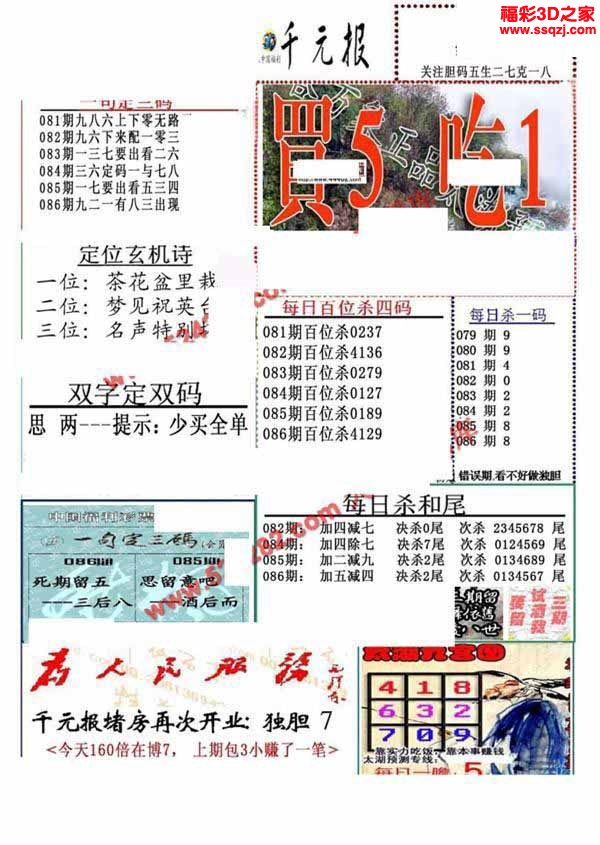 福彩3D之家
www.ssqzj.com
千元报
关注胆码五生二七克一八
一句定三码
081期九八六上下零无路
082期九六下来配一零三
083期一三七要出看二六
084期三六定码一与七八
085期一七要出看五三四
086期九二一有八三出现
買5 吃1
定位玄机诗
一位：茶花盆里栽
二位：梦见祝英台
三位：名声特别
每日百位杀四码
081期百位杀0237
082期百位杀4136
083期百位杀0279
084期百位杀0127
085期百位杀0189
086期百位杀4129
每日杀一码
079 期 9
080 期 9
081 期 4
082 期 0
083 期 2
084 期 2
085 期 8
086 期 8
错误期,看不好做独胆
双字定双码
思 两---提示：少买全单
中国福利彩票
一句定三码
086期
死期留五
---三后八
085期
思留意吧
---酒后而
每日杀和尾
082期： 加四减七 决杀0尾 次杀 2345678 尾
084期： 加四除七 决杀7尾 次杀 0124569 尾
085期： 加二减九 决杀2尾 次杀 0134689 尾
086期： 加五减四 决杀2尾 次杀 0134567 尾
为人民服务
千元报堵房再次开业：独胆 7
<今天160倍在博7， 上期包3小赚了一笔>
4 1 8
6 3 2
7 0 9
靠实力吃饭，靠本事赚钱
太湖预测专线：
每日一胆 5